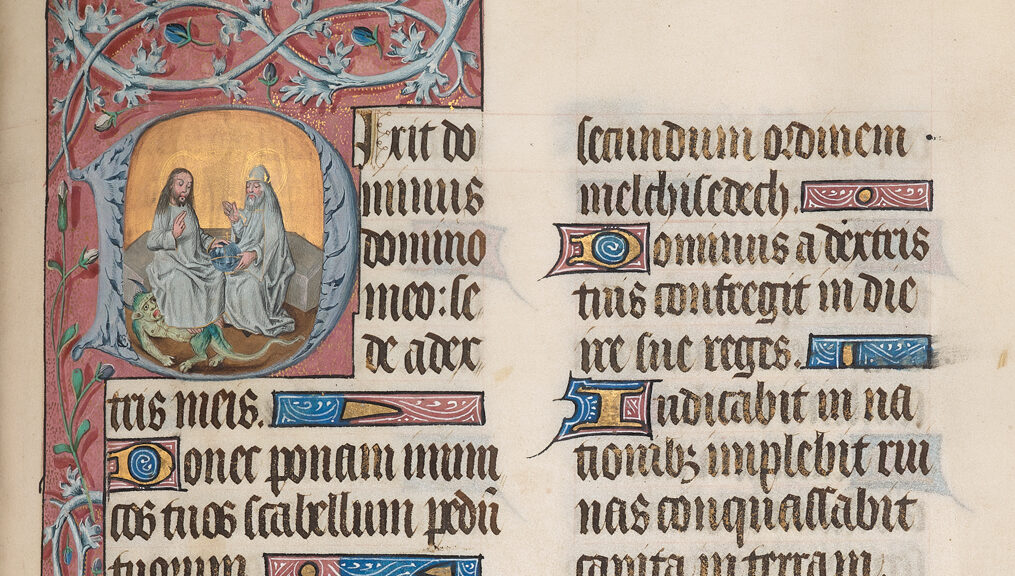 Dixit do
minus
domino
meo: se
de a dex
tris meis.
Donec ponam inimi
cos tuos scabellum pedū
tuorum
secundum ordinem
melchisedech.
Dominus a dextris
tuis confregit in die
ire sue reges.
Iudicabit in na
tionibꝫ implebit rui
nas conquassabit
capita in terram